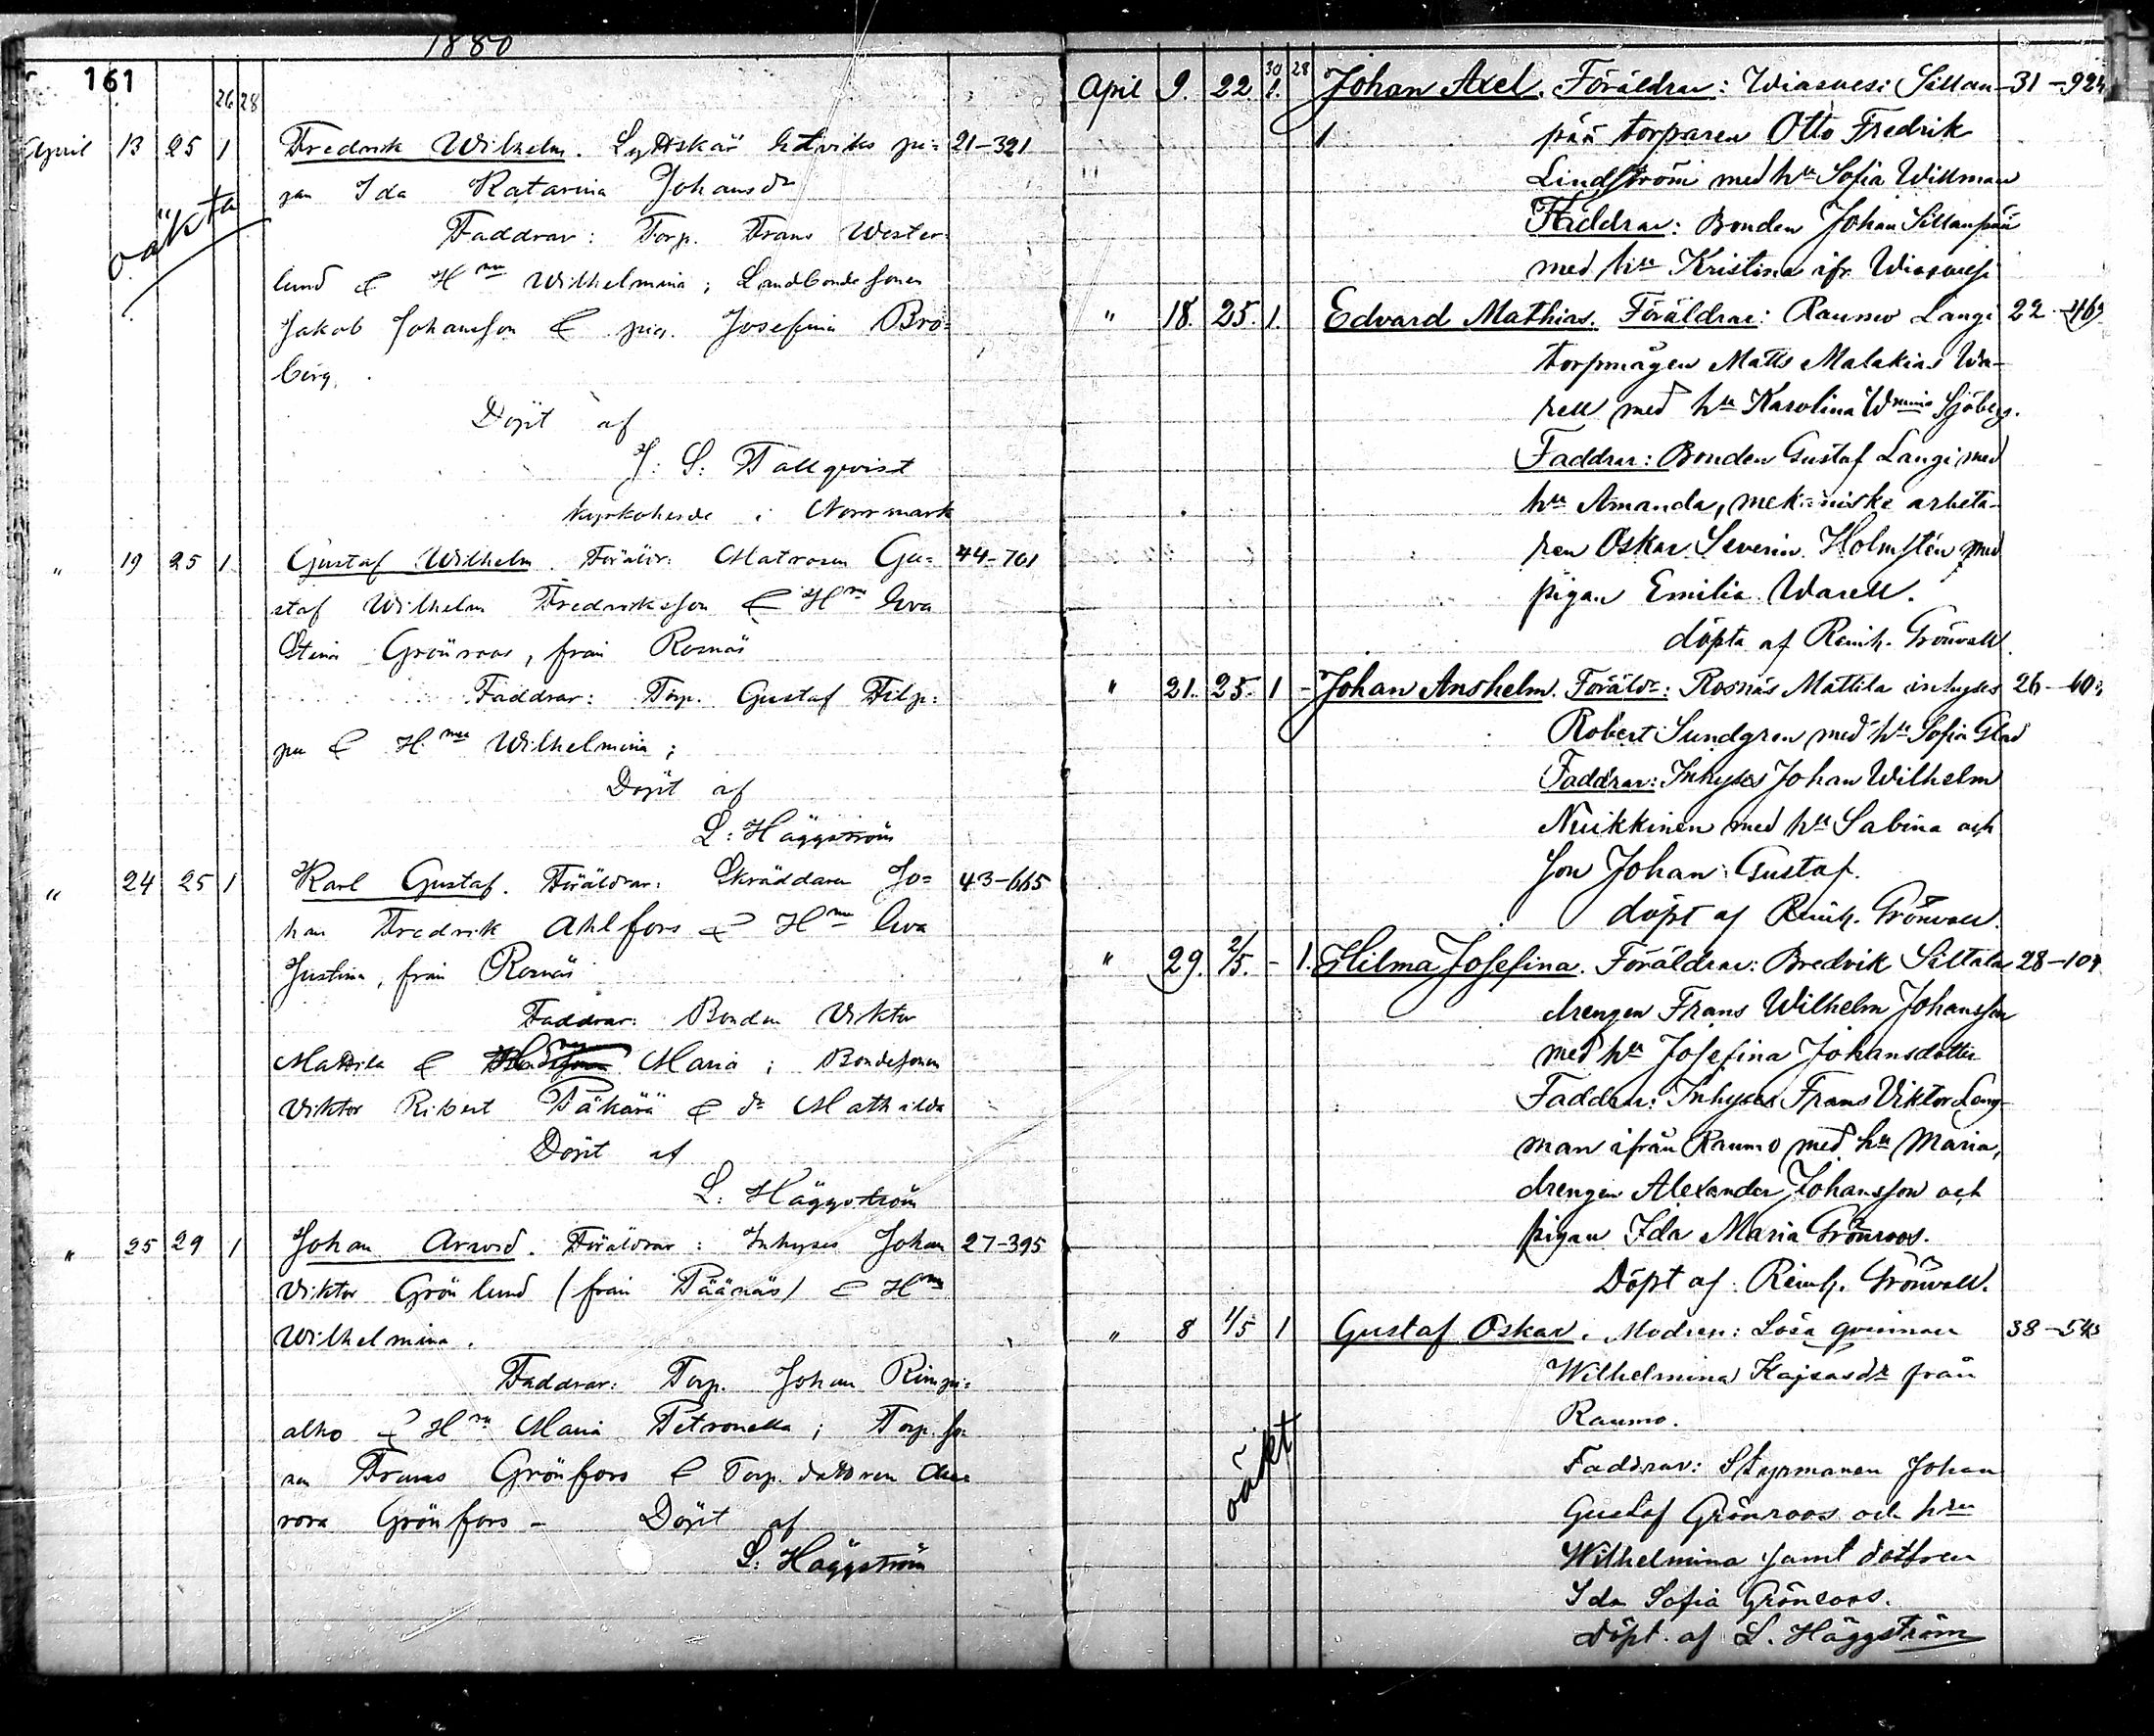 1880
161
26 28
April 13 25 1 Fredrik Wilhelm. Lyttskär Estviks pi= 21-321
gan Ida Katarina Johansdr
oäkta
Faddrar: Torp. Frans Wester
lund & Hnu Wilhelmina; Landbondesonen
Jakob Johansson & pig. Josefina Bro=
berg.
Döpt af
J: S: Tallqvist
Kyrkoherde i Norrmark
" 19 25 1 Gustaf Wilhelm. Föräldr: Matrosen Gu= 44-701
staf Wilhelm Fredriksson & Hru Eva
Stina Grönroos, från Rosnäs
Faddrar: Torp. Gustaf Filp:
pu & H.nu Wilhelmina;
Döpt af
L: Häggström
" 24 25 1 Karl Gustaf. Föräldrar: Skräddaren Jo= 43-665
han Fredrik Ahlfors & Hnu Eva
Justina, från Rosnäs
Faddrar: Bonden Viktor
Mattila & Maria; Bondesonen
Viktor Robert Päkärä & dr Mathilda
Döpt af
L: Häggström
" 25 29 1 Johan Arvid. Föräldrar: Inhyses Johan 27-395
Viktor Grönlund (från Päänäs) & Hnu
Wilhelmina.
Faddrar: Torp. Johan Rimpi=
alho & Hru Maria Petronella; Torp. so=
nen Frans Grönfors & Torp. dottren Au=
rora Grönfors - Döpt af
L: Häggström
30 28
April 9. 22. 1. Johan Axel. Föräldrar: Wiasvesi Sillan- 31-924
pää torparen Otto Fredrik
Lindström med hu Sofia Willman
Faddrar: Bonden Johan Sillanpää
med hu Kristina ifr. Wiasvesi
" 18. 25. 1. Edvard Mathias. Föräldrar: Raumo Langi 22-
torpmågen Matts Malakias Wa-
rell med hu Karolina Wmina Sjöberg.
Faddrar: Bonden Gustaf Langi med
hu Amanda, mekaniske arbeta-
ren Oskar Severin Holmstén med
pigan Emilia Warell.
döpta af Reinh. Grönvall.
" 21. 25. 1 - Johan Anshelm. Föräldr: Rosnäs Mattila inhyses 26-
Robert Sundgren med hu Sofia Glad
Faddrar: Inhyses Johan Wilhelm
Nuikkinen med hu Sabina och
son Johan Gustaf.
döpt af Reinh. Grönvall.
" 29. 2/5. - 1. Hilma Josefina. Föräldrar: Bredvik Siltala 28-104
drengen Frans Wilhelm Johansson
med hu Josefina Johansdotter
Faddrar: Inhyses Frans Viktor Leng-
man ifrån Raumo med hu Maria,
drengen Alexander Johansson och
pigan Ida Maria Grönroos.
Döpt af Reinh. Grönvall.
" 8 1/5 1 Gustaf Oskar. Modren: Lösa qvinnan 38-543
Wilhelmina Kajsasdr från
Raumo.
oäkt
Faddrar: Styrmanen Johan
Gustaf Grönroos och hru
Wilhelmina samt dottren
Ida Sofia Grönroos.
döpt af L. Häggström